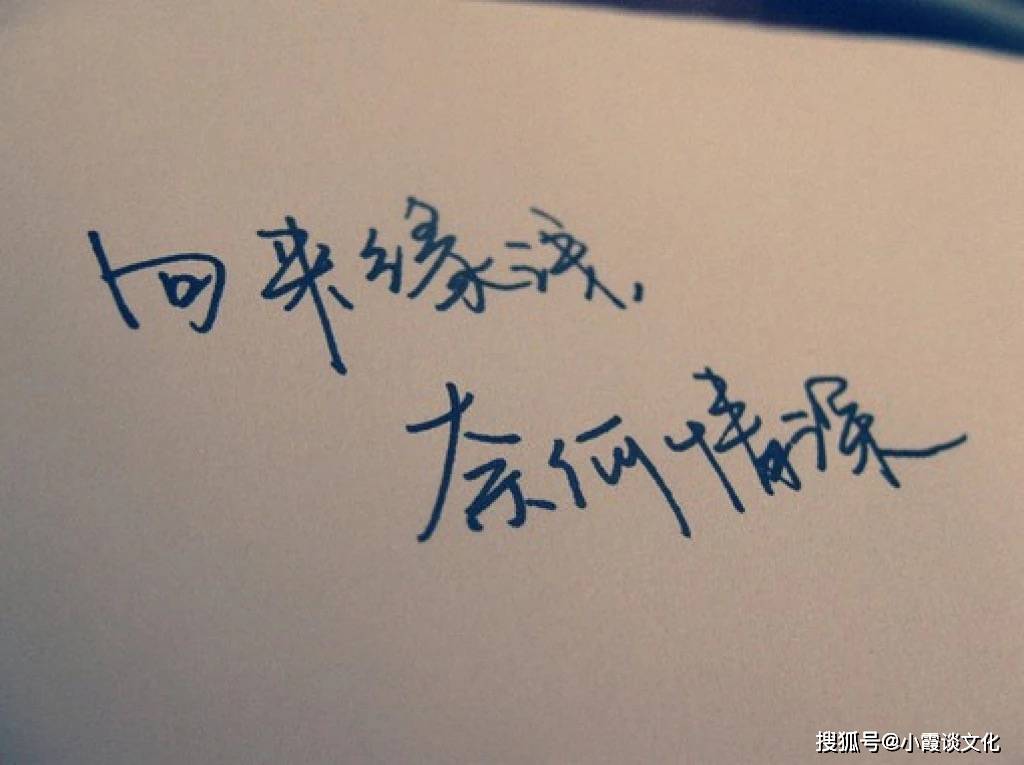 向来缘浅,
奈何情深
搜狐号@小霞谈文化